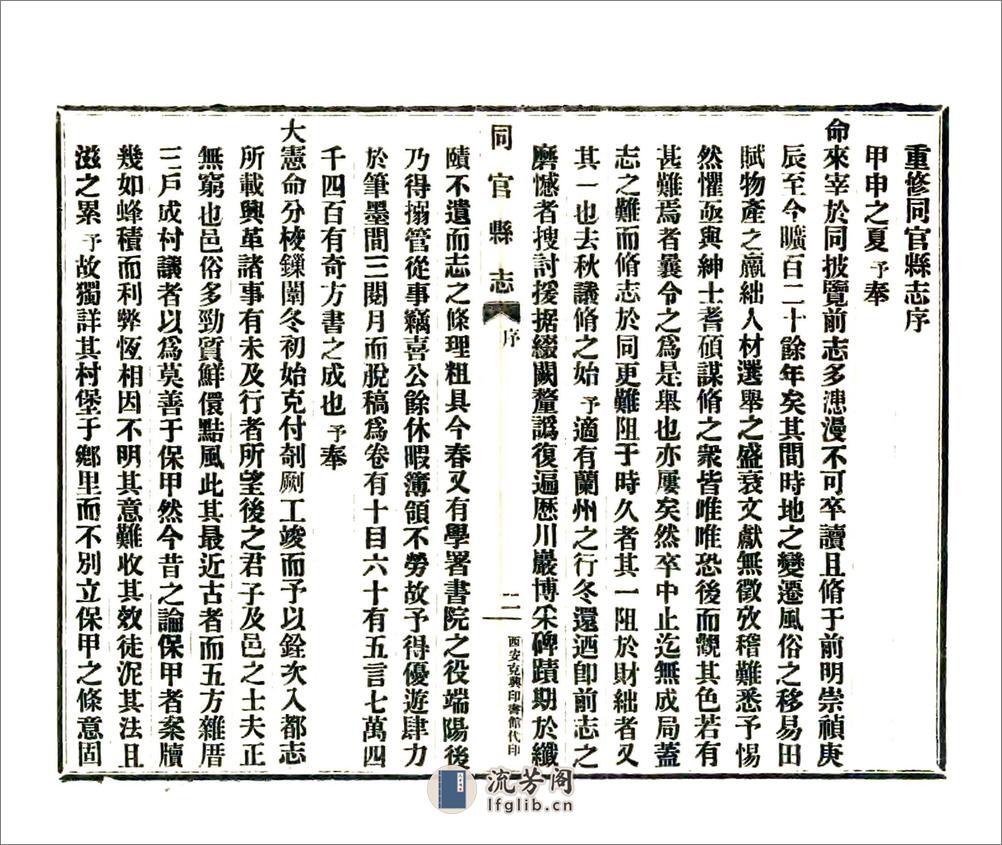 重修同官縣志序
甲申之夏予奉
命來宰於同披覽前志多漶漫不可卒讀且脩于前明崇禎庚
辰至今曠百二十餘年矣其間時地之變遷風俗之移易田
賦物產之羸絀人材選舉之盛衰文獻無徵攷稽難悉予惕
然懼亟與紳士耆碩謀脩之衆皆唯唯恐後而觀其色若有
甚難焉者曩令之爲是舉也亦屢矣然卒中止迄無成局蓋
志之難而脩志於同更難阻于時久者其一阻於財絀者又
其一也去秋議脩之始予適有蘭州之行冬還迺卽前志之
磨憾者搜討援据綴闕釐譌復遍歷川巖博采碑蹟期於纖
同官縣志 序 二 西安克興印書館代印
賾不遺而志之條理粗具今春又有學署書院之役端陽後
乃得搦管從事竊喜公餘休暇簿領不勞故予得優遊肆力
於筆墨間三閱月而脫稿爲卷有十目六十有五言七萬四
千四百有奇方書之成也予奉
大憲命分校鏁闈冬初始克付剞劂工竣而予以銓次入都志
所載興革諸事有未及行者所望後之君子及邑之士夫正
無窮也邑俗多勁質鮮儇黠風此其最近古者而五方雜厝
三戶成村議者以爲莫善于保甲然今昔之論保甲者案牘
幾如蜂積而利弊恆相因不明其意難收其效徒泥其法且
滋之累予故獨詳其村堡于鄉里而不別立保甲之條意固
流芳阁
lfglib.cn